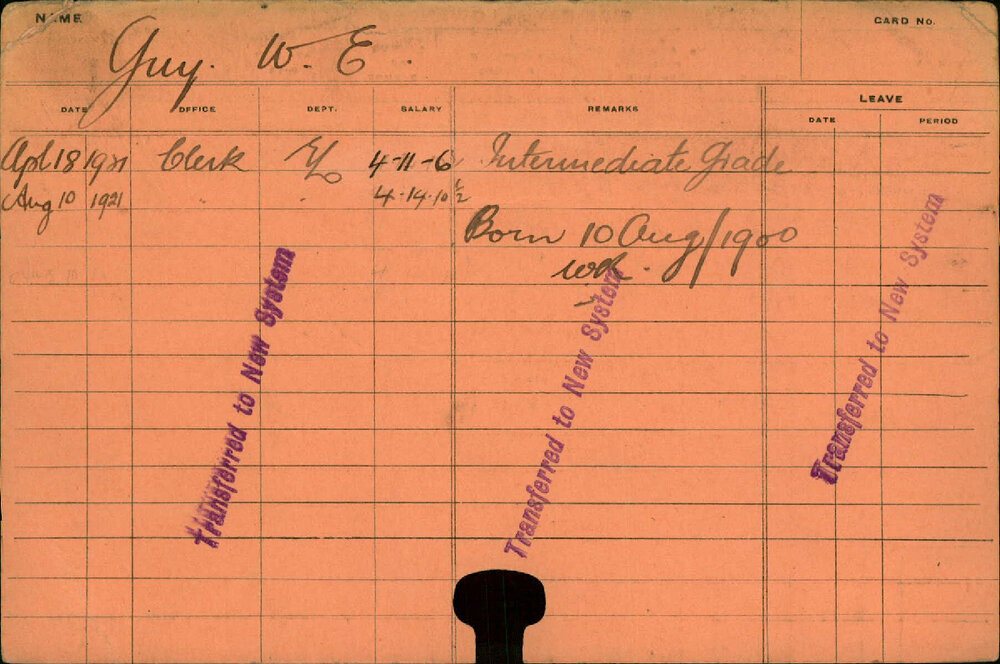 NAME
CARD No.
Guy. W. E.
DATE OFFICE DEPT. SALARY REMARKS LEAVE
DATE PERIOD
Apl 18 1921 Clerk 4-11-6 Intermediate Grade
Aug 10 1921 " " 4-14-10½
Born 10 Aug/1900
Transferred to New System
Transferred to New System
Transferred to New System